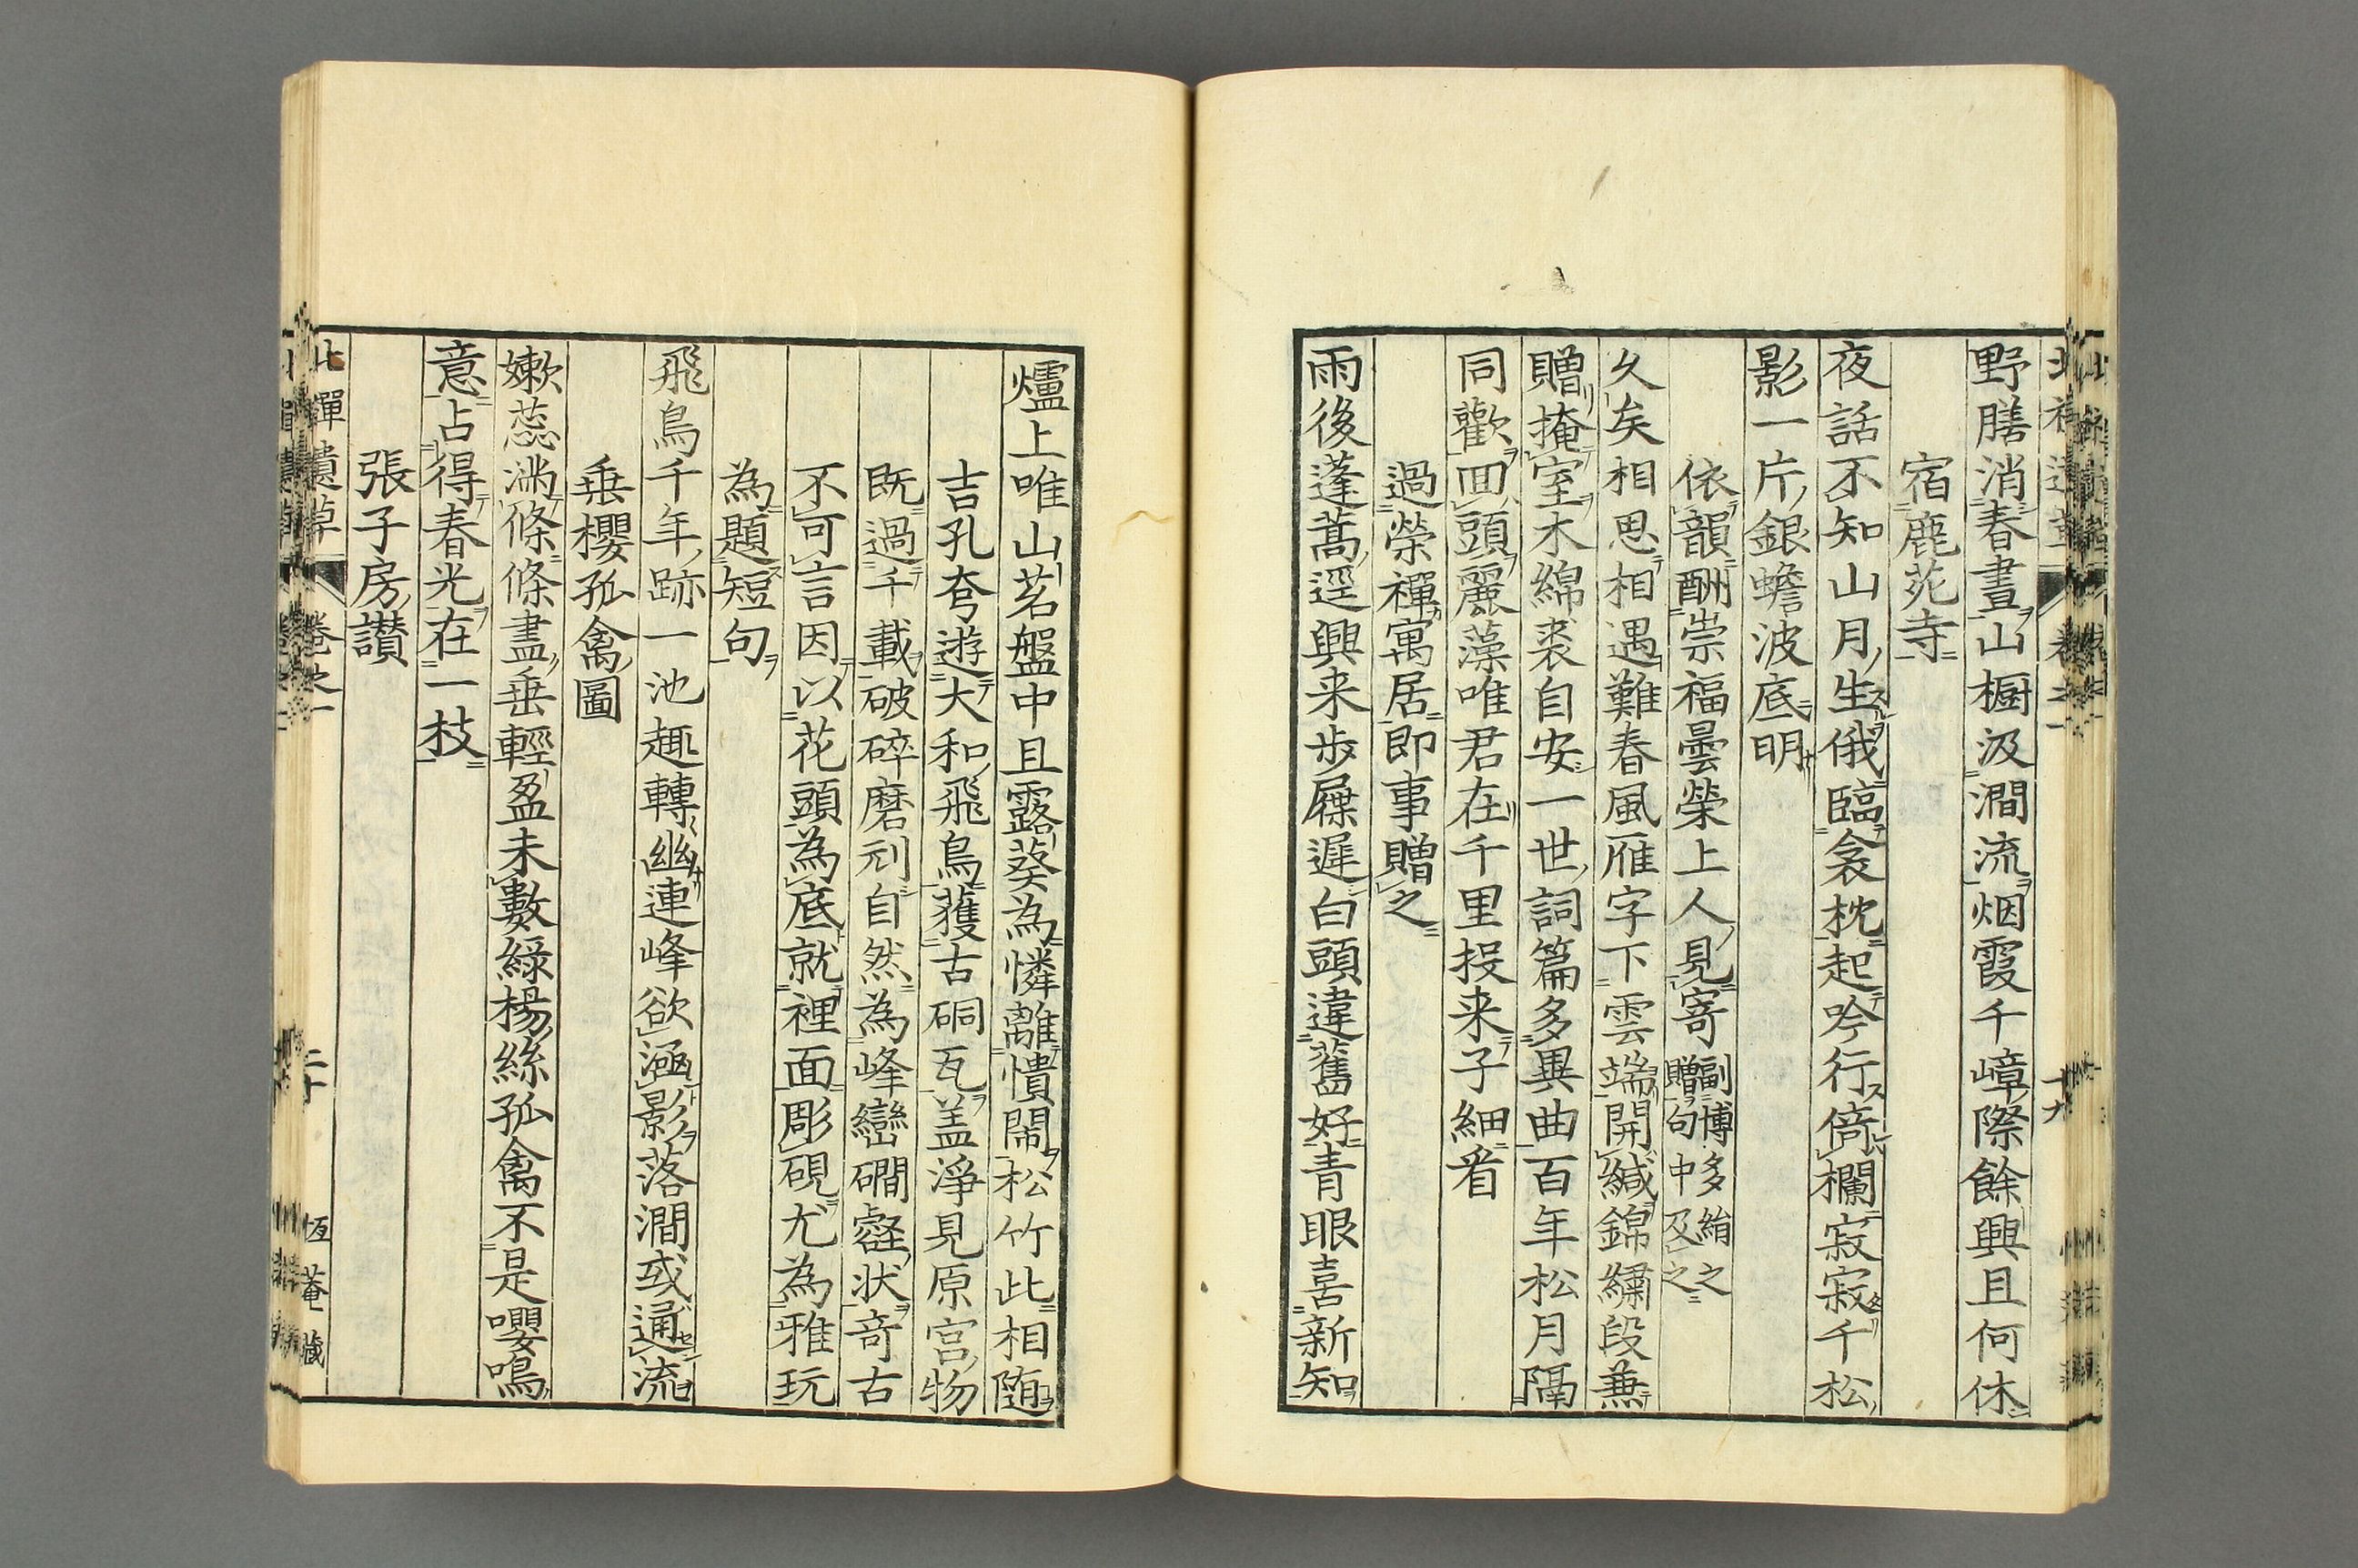 野膳消春晝山橱汲澗流烟霞千嶂際餘興且何休
宿鹿苑寺
夜話不知山月生俄臨衾枕起吟行倚欄寂寂千松
影一片銀蟾波底明
依韻酬崇福曇榮上人見寄副博多絹之贈句中及之
久矣相思相遇難春風雁字下雲端開緘錦繡段兼
贈掩室木綿裘自安一世詞篇多異曲百年松月隔
同歡囬頭麗藻唯君在千里投来子細看
過榮禪寓居即事贈之
雨後蓬蒿逕興来歩屧遲白頭違舊好青眼喜新知
爐上唯山茗盤中且露葵為憐離憒閙松竹此相随
吉孔夸遊大和飛鳥獲古硐瓦盖淨見原宮物
既過千載破碎磨刓自然為峰巒磵壑状奇古
不可言因以花頭為底就裡面彫硯尤為雅玩
為題短句
飛鳥千年跡一池趣轉幽連峰欲涵影落澗或通流
垂櫻孤禽圖
嫩蕊滿條條盡垂輕盈未數綠楊絲孤禽不是嚶鳴
意占得春光在一枝
張子房讃
北禪遺草
卷之一
二十
恆菴藏